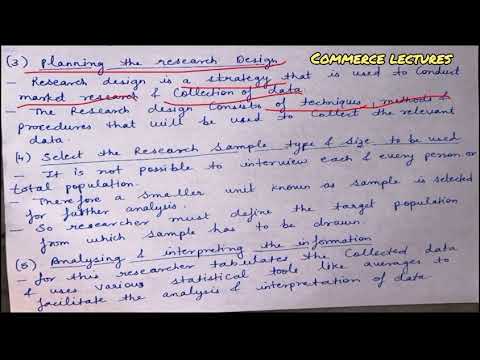 COMMERCE LECTURES
(3) Planning the research Design
- Research design is a strategy that is used to conduct
market research & Collection of data
- The Research design consists of techniques, methods &
procedures that will be used to collect the relevant
data.
(4) Select the Research sample type & size to be used
- It is not possible to interview each & every person or
total population.
- Therefore a smaller unit known as sample is selected
for further analysis.
- So researcher must define the target population
from which sample has to be drawn.
(5) Analysing & interpreting the information
- for this researcher tabulates the collected data
& uses various statistical tools like averages to
facilitate the analysis & interpretation of data